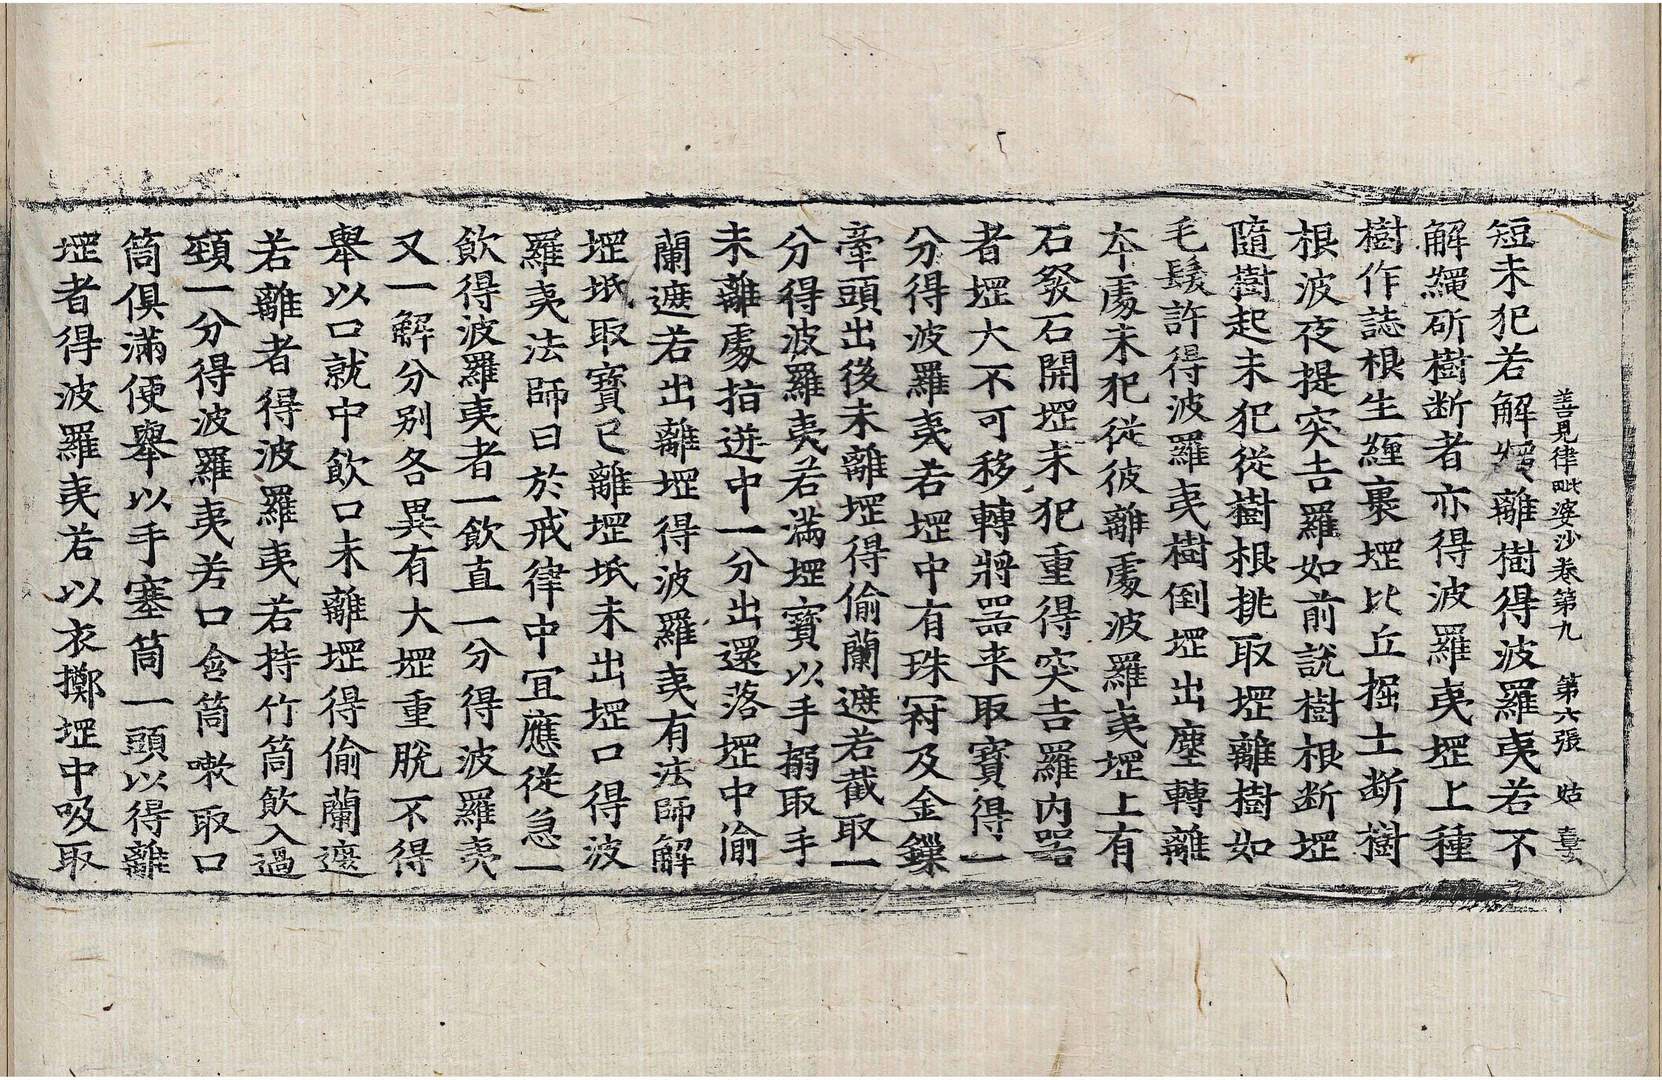 善見律毗婆沙卷第九 第六張 姑 喜
短未犯若解離樹得波羅夷若不
解繩斫樹断者亦得波羅夷堽上種
樹作誌根生纏裹堽比丘掘土断樹
根波夜提突吉羅如前說樹根断堽
隨樹起未犯從樹根挑取堽離樹如
毛髮許得波羅夷樹倒堽出塵轉離
本處未犯從彼離處波羅夷堽上有
石發石開堽未犯重得突吉羅内器
者堽大不可移轉將器来取寶得一
分得波羅夷若堽中有珠冠及金鏁
牽頭出後未離堽得偷蘭遮若截取一
分得波羅夷若滿堽寶以手搦取手
未離處指迸中一分出還落堽中偷
蘭遮若出離堽得波羅夷有法師解
堽坻取寶已離堽坻未出堽口得波
羅夷法師曰於戒律中冝應從急一
飲得波羅夷者一飲直一分得波羅夷
又一解分别各異有大堽重脫不得
舉以口就中飲口未離堽得偷蘭遮
若離者得波羅夷若持竹筒飲入過
頸一分得波羅夷若口含筒嗽取口
筒俱滿便舉以手塞筒一頭以得離
堽者得波羅夷若以衣擲堽中吸取